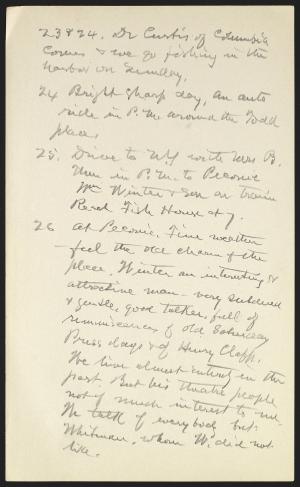 23 & 24. Dr Curtis of Columbia
Comes & we go fishing in the
Harbor on Sunday.
24 Bright sharp day, an auto
ride in P. M. around the Todd
place,
25. Drive to NY with Mrs B.
Then in P. M. to Peconic
Wm Winter & Son on train
Reach Fish House at 7.
26 At Peconic. Fine weather
feel the old charm of the
place. Winter an interesting &
attractive man - very subdued
& gentle, good talker, full of
reminiscences of old Saturday
Press days & of Henry Clapp.
We live almost entirely in the
past. But his theatre people
not of much interest to me.
We talk of everybody but
Whitman, whom W. did not
like.